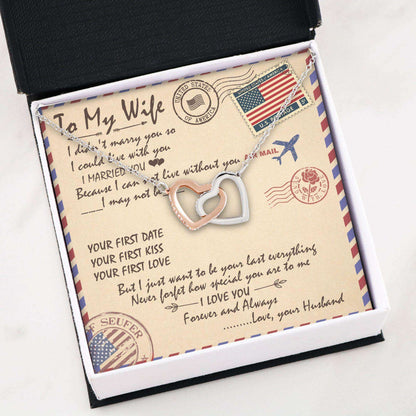 To My Wife
I didn't marry you so
I could live with you
I MARRIED YOU
Because I can not live without you
I may not be
YOUR FIRST DATE
YOUR FIRST KISS
YOUR FIRST LOVE
But I just want to be your last everything
Never forget how special you are to me
I LOVE YOU
Forever and Always
..........Love, your Husband
UNITED STATES
OF AMERICA
U.S. POSTAGE
AIR MAIL
F SEUFER